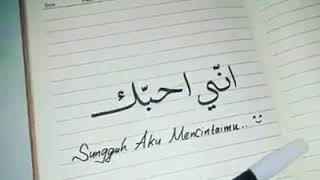 انّي احبّك
Sungguh Aku Mencintaimu..